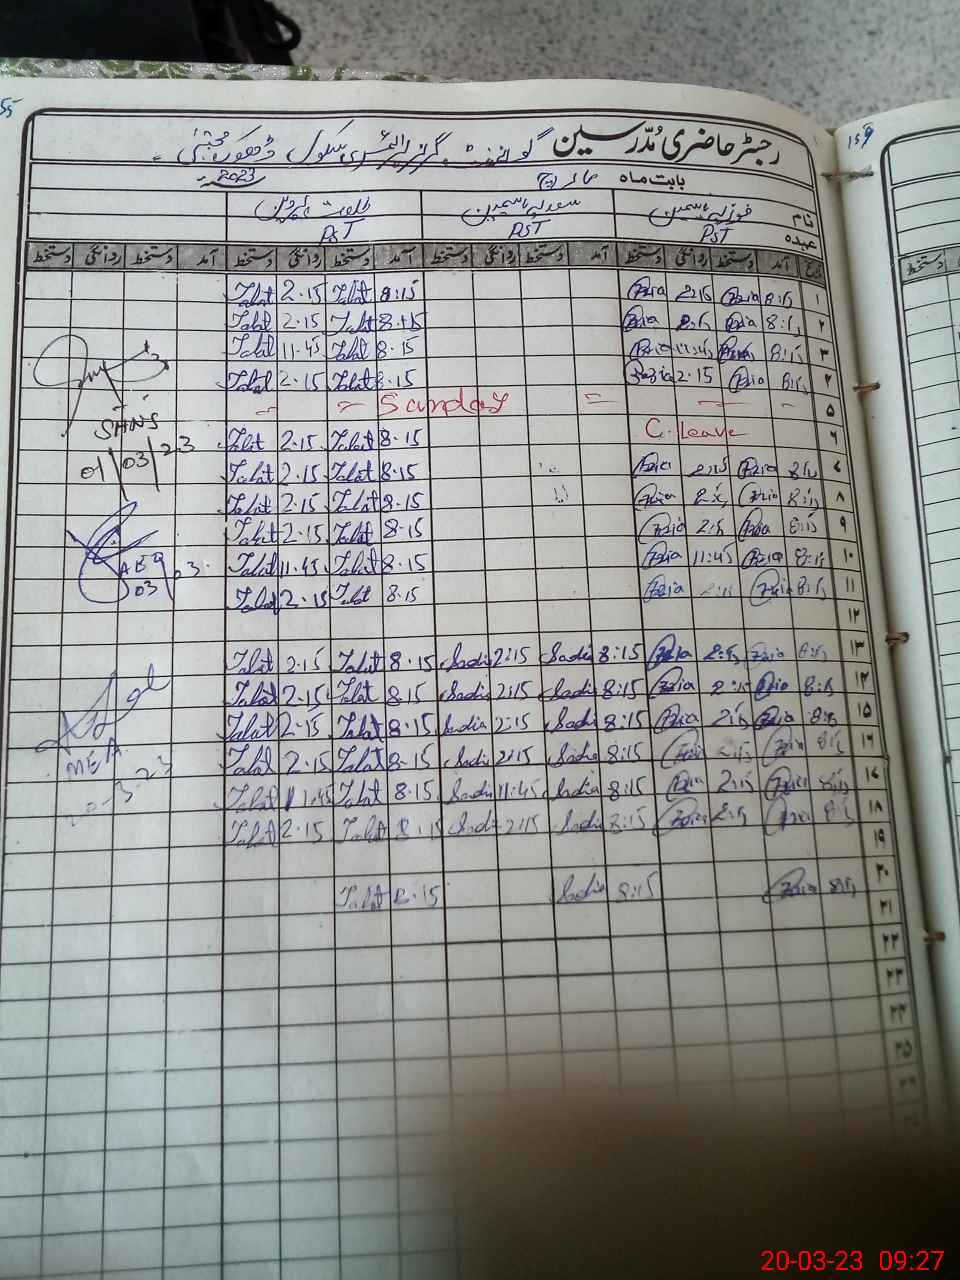 55
159
رجسٹر حاضری مُدّرسین گورنمنٹ گرلز پرائمری سکول ڈھوک مجتبیٰ
بابت ماہ مارچ 2023
نام فوزیہ یاسمین سعدیہ یاسمین طلعت پروین
عہدہ PST PST PST
تاریخ آمد دستخط روانگی دستخط آمد دستخط روانگی دستخط آمد دستخط روانگی دستخط آمد دستخط روانگی دستخط
Talat 2.15 Talat 8:15 Fozia 2:15 Fozia 8:15 ۱
Talat 2.15 Talat 8.15 Fozia 2:15 Fozia 8:15 ۲
Talat 11.45 Talat 8.15 Fozia 11:45 Fozia 8:15 ۳
Talat 2.15 Talat 8.15 Fozia 2.15 Fozia 8:15 ۴
Sunday ۵
Talat 2.15 Talat 8.15 C. Leave ۶
Talat 2.15 Talat 8.15 Fozia 2:15 Fozia 8:15 ۷
Talat 2.15 Talat 8.15 Fozia 2:15 Fozia 8:15 ۸
Talat 2.15 Talat 8.15 Fozia 2:15 Fozia 8:15 ۹
Talat 11.45 Talat 8.15 Fozia 11:45 Fozia 8:15 ۱۰
Talat 2.15 Talat 8.15 Fozia 2:15 Fozia 8:15 ۱۱
۱۲
Talat 2.15 Talat 8.15 Sadia 2:15 Sadia 8:15 Fozia 2:15 Fozia 8:15 ۱۳
Talat 2.15 Talat 8.15 Sadia 2:15 Sadia 8:15 Fozia 2:15 Fozia 8:15 ۱۴
Talat 2.15 Talat 8.15 Sadia 2:15 Sadia 8:15 Fozia 2:15 Fozia 8:15 ۱۵
Talat 2.15 Talat 8.15 Sadia 2:15 Sadia 8:15 Fozia 2:15 Fozia 8:15 ۱۶
Talat 11.45 Talat 8.15 Sadia 11:45 Sadia 8:15 Fozia 2:15 Fozia 8:15 ۱۷
Talat 2.15 Talat 8.15 Sadia 2:15 Sadia 8:15 Fozia 2:15 Fozia 8:15 ۱۸
۱۹
Talat 8.15 Sadia 8:15 Fozia 8:15 ۲۰
۲۱
۲۲
۲۳
۲۴
۲۵
SHNS
01/03/23
AEO
03
MEA
20-3-23
دستخط
20-03-23 09:27